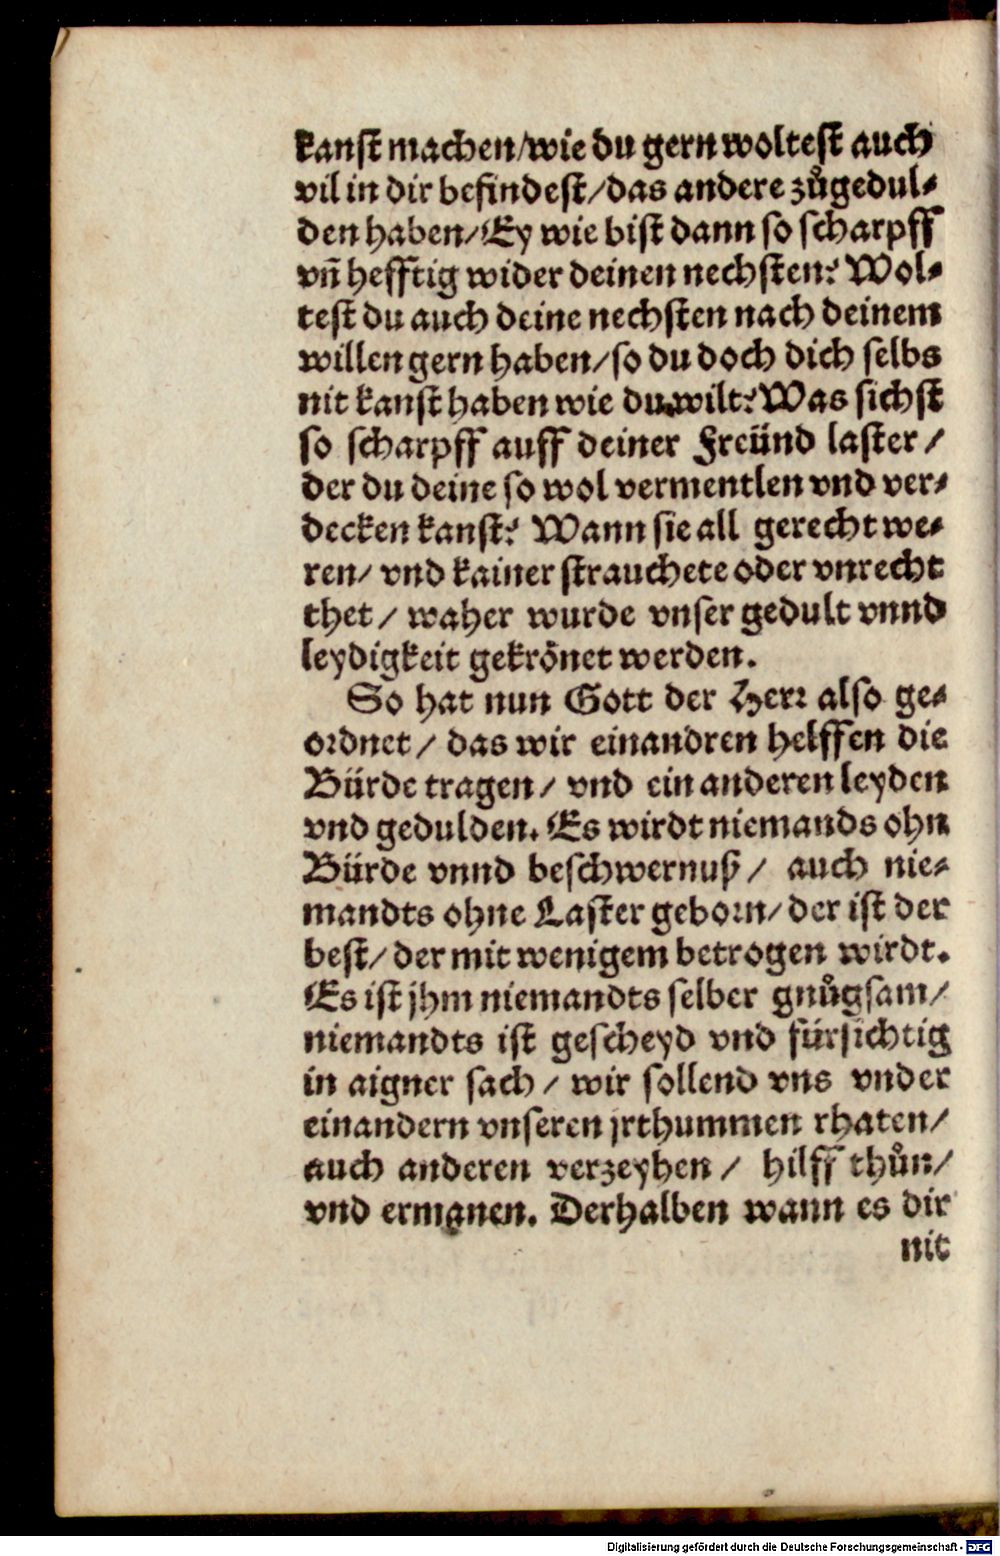 kanst machen/wie du gern woltest auch
vil in dir befindest/das andere zůgedul-
den haben/Ey wie bist dann so scharpff
vñ hefftig wider deinen nechsten? Wol-
test du auch deine nechsten nach deinem
willen gern haben/so du doch dich selbs
nit kanst haben wie du wilt? Was sichst
so scharpff auff deiner Freünd laster/
der du deine so wol vermentlen vnd ver-
decken kanst? Wann sie all gerecht we-
ren/ vnd kainer strauchete oder vnrecht
thet/ waher wurde vnser gedult vnnd
leydigkeit gekrönet werden.
So hat nun Gott der Herr also ge-
ordnet/ das wir einandren helffen die
Bürde tragen/ vnd ein anderen leyden
vnd gedulden. Es wirdt niemands ohn
Bürde vnnd beschwernuß/ auch nie-
mandts ohne Laster geborn/ der ist der
best/ der mit wenigem betrogen wirdt.
Es ist jhm niemandts selber gnůgsam/
niemandts ist gescheyd vnd fürsichtig
in aigner sach/ wir sollend vns vnder
einandern vnseren jrthummen rhaten/
auch anderen verzeyhen/ hilff thůn/
vnd ermanen. Derhalben wann es dir
nit
Digitalisierung gefördert durch die Deutsche Forschungsgemeinschaft - DFG